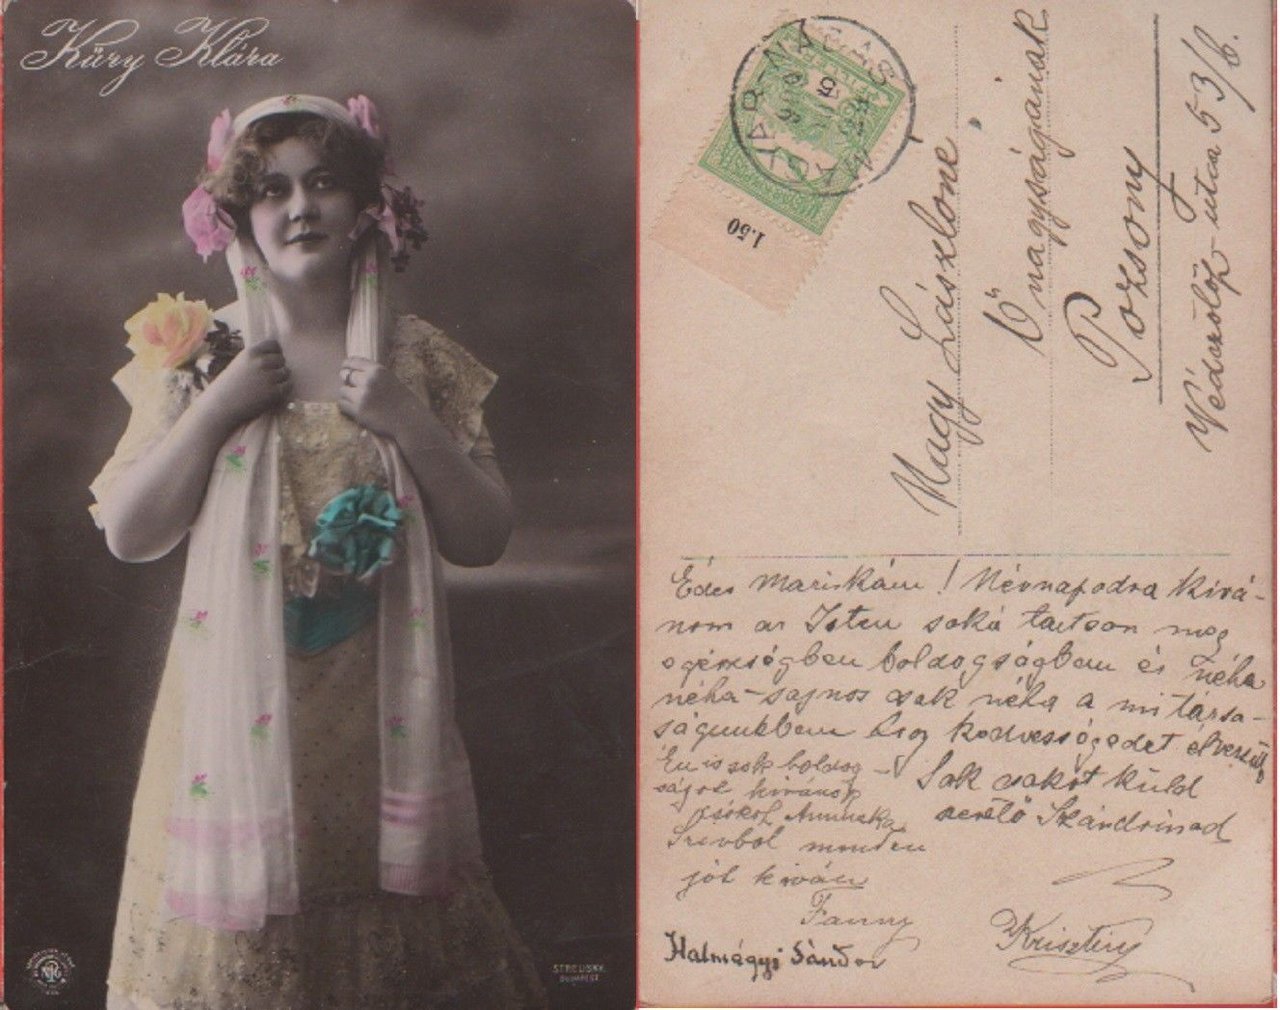 Küry Klára
STRELISKY
BUDAPEST
1.50
Nagy Lászlóné
Ő nagyságának
Pozsony
Védczölöp utca 53/b.
Édes Mariskám! Névnapodra kivá-
nom az Isten soká tartson meg
egészségben boldogságban és néha
néha-sajnos csak néha a mi társa-
ságunkban hogy kedvességedet élvezzük
Sok csókot küld
szerető Szándrinád
Én is sok boldog-
ságot kivánok
csókol Annuska
Szivből minden
jót kíván
Fanny
Krisztin
Halmágyi Sándor